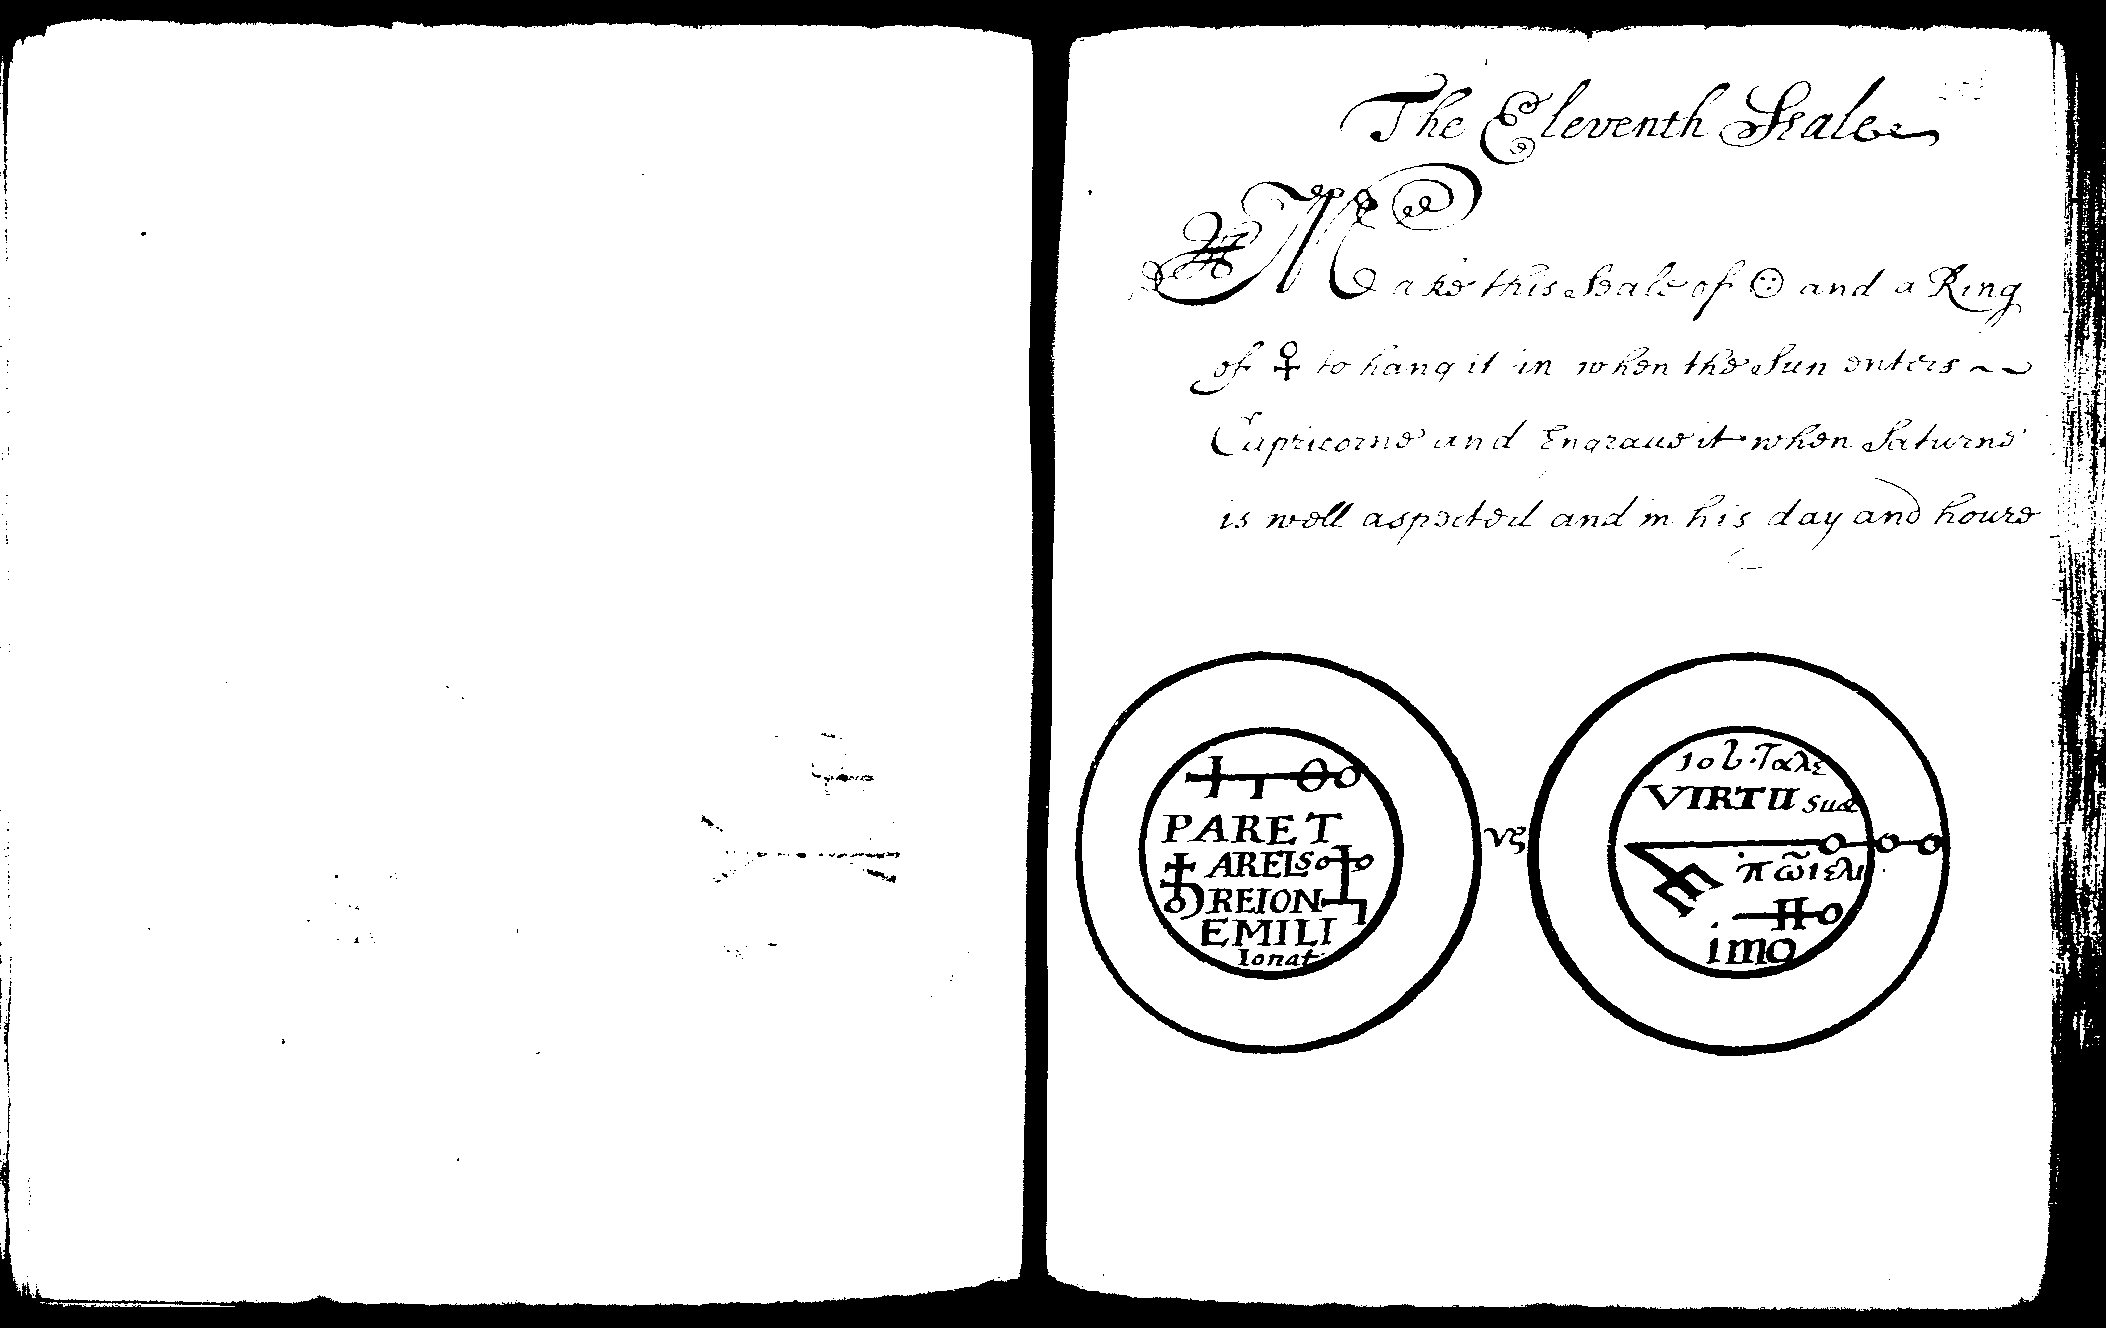 The Eleventh Seale
Make this Seale of ☉ and a Ring
of ♀ to hang it in when the Sun enters
Capricorne and Engraue it when Saturne
is well aspected and in his day and houre
PARET
ARELS
REION
EMILI
Ionat
νξ
ιοb·Ταλε
VIRTU suæ
πῶιελι
imo